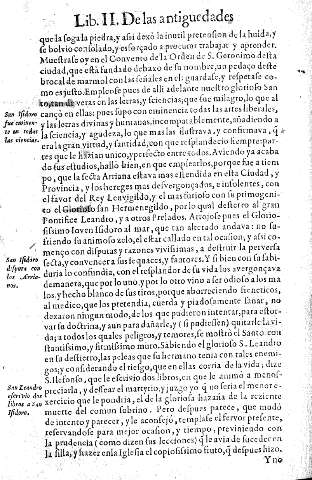 Lib. II. De las antiguedades
que la soga la piedra, y assi dexò la inutil pretension de la huida, y
se bolvio consolado, y esforçado a procurar trabajar y aprender.
Muestrase oy en el Convento de la Orden de S. Geronimo desta
ciudad, que està fundado debaxo de su nombre, un pedaço deste
brocal de marmol con las señales en el: guardase, y respetase como
es justo. Emplease pues de alli adelante nuestro glorioso San
tan de veras en las letras, y sciencias, que fue milagro, lo que al
cançò en ellas: pues supo con eminencia todas las artes liberales,
y las letras divinas y humanas, incomparablemente, añadiendo a
la sciencia, y agudeza, lo que mas las ilustrava, y confirmava, q̃
era la gran virtud, y santidad, con que resplandecio siempre
que le hazian unico, y perfecto entre todos. Aviendo ya acaba
do sus estudios, hallò bien, en que emplearlos, porque fue a tiem
po, que la secta Arriana estava mas estendida en esta Ciudad, y
Provincia, y los hereges mas desvergonçados, e insolentes, con
el favor del Rey Leovigildo, y el mas furioso con su primogeni-
to el Glorioso san Hermenegildo, por lo qual desterrò al gran
Pontifice Leandro, y a otros Prelados. Arrojose pues el Glorio-
sissimo Ioven Isidoro al mar, que tan alterado andava: no su-
friendo su animoso zelo, el estar callado en tal ocasion, y assi co-
menço con disputas y razones vivissimas, a destruir la perversa
secta, y convencer a sus sequaces, y fautores. Y si bien con su sabi-
duria los confundia, con el resplandor de su vida los avergonçava
demanera, que por lo uno y por lo otro vino a ser odioso a los ma
los, y hecho blanco de sus tiros, porque aborreciendo freneticos,
al medico, que los pretendia, cuerda y piadosamente sanar, no
dexaron ningun modo, de los que pudieron intentar, para estor-
var su doctrina, y aun para dañarle, y (si pudiessen) quitarle la vi-
da; a todos los quales peligros, y temores, se mostrò el Santo con
stantissimo, y fortissimo muro. Sabiendo el glorioso S. Leandro
en su destierro, las peleas que su hermano tenia con tales enemi-
gos; y considerando el riesgo, que en ellas corria de la vida; dize
S. Ilefonso, que le escrivio dos libros, en que le animò a menos-
preciarla, y dessear el martyrio, y juzgo yo q̃ no seria el menor e-
xercicio que le pondria, el de la gloriosa hazaña de la reziente
muerte del comun sobrino. Pero despues parece, que mudò
de intento y parecer, y le aconsejò, templasse el fervor presente,
reservandose para mejor ocasion, y tiempo, previniendo con
la prudencia (como dizen sus lecciones) q̃ le avia de suceder en
la silla, y fazer en la Iglesia el copiosissimo fruto, q̃ despues hizo.
Y no
San Isidoro
fue eminen-
te en todas
las ciencias.
San Isidoro
disputa con
los Arria-
nos.
San Leandro
escrivio dos
libros a san
Isidoro.